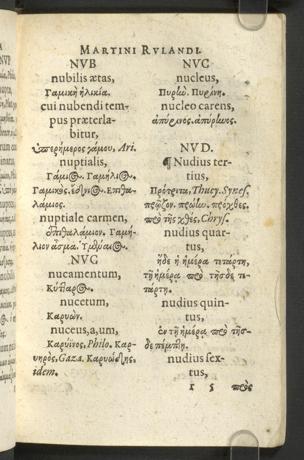 MARTINI RVLANDI.
NVB
nubilis ætas,
Γαμικὴ ἡλικία.
cui nubendi tem-
pus præterla-
bitur,
ὑπερήμερος γάμου, Ari.
nuptialis,
Γάμιος. Γαμήλιος.
Γαμικὸς.
λάμιος.
nuptiale carmen,
ἐπιθαλάμιον. Γαμή-
λιον ᾆσμα. Ὑμέναιος.
NVC
nucamentum,
Κύτταρος.
nucetum,
Καρυών.
nuceus,a,um,
Καρύινος, Philo. Καρ-
υηρὸς, Gaza. Καρυώδης,
idem.
NVC
nucleus,
Πυρίνη.
nucleo carens,
ἀπύρινος. ἀπύρηνος.
NVD.
¶ Nudius ter-
tius,
Πρότριτα, Thucy. Synes.
πρώχθες.
πρὸ τῆς χθὲς, Chrys.
nudius quar-
tus,
ἥδε ἡ ἡμέρα τετάρτη,
τῇ ἡμέρᾳ πρὸ τῆσδε τε-
τάρτη.
nudius quin-
tus,
ἐν τῇ ἡμέρᾳ πρὸ τῆσ-
δε πέμπτῃ.
nudius sex-
tus,
πρὸς